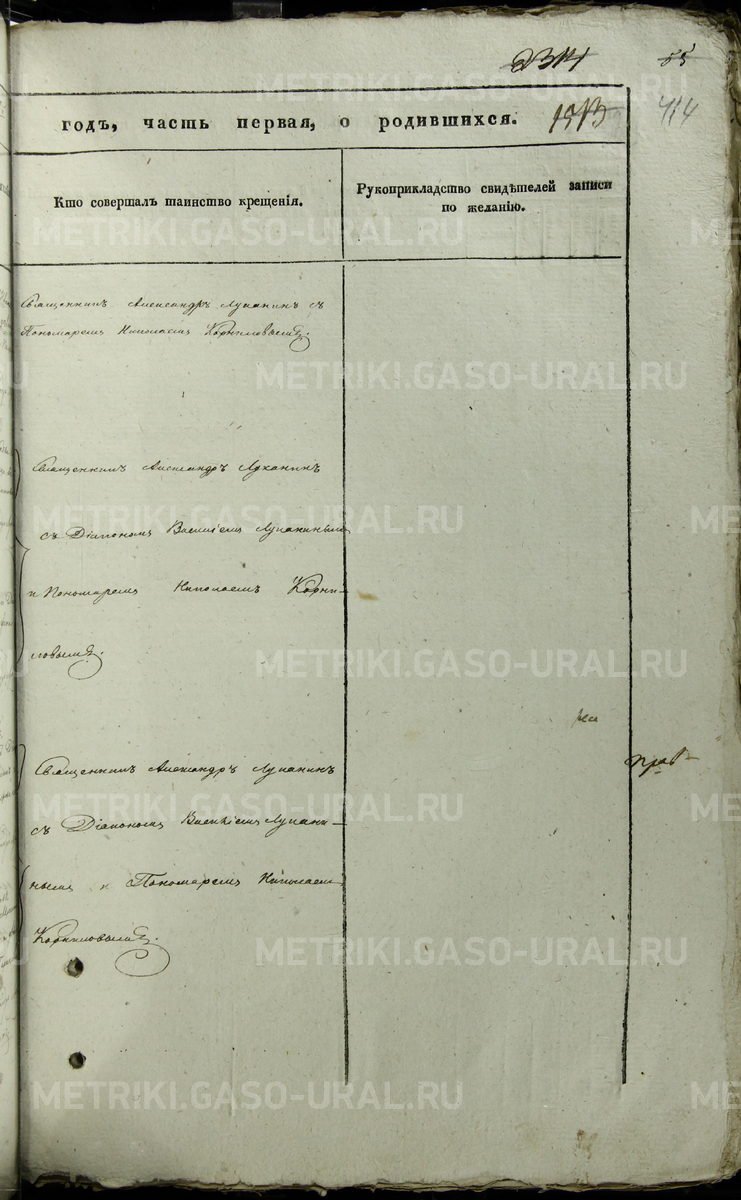 55
414
годъ, часть первая, о родившихся.
Кто совершалъ таинство крещенія.
Рукоприкладство свидѣтелей записи
по желанію.
Священникъ Александръ Луканинъ съ
Пономаремъ Николаемъ Корниловымъ.
Священникъ Александръ Луканинъ
съ Діакономъ Василіемъ Луканинымъ
и Пономаремъ Николаемъ Корни-
ловымъ.
Священникъ Александръ Луканинъ
съ Діакономъ Василіемъ Лукани-
нымъ и Пономаремъ Николаемъ
Корниловымъ.
METRIKI.GASO-URAL.RU